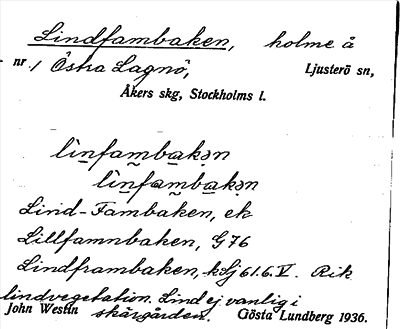 Lindfambaken, holme å
nr 1 Östra Lagnö, Ljusterö sn,
Åkers skg, Stockholms l.
li̱nfam̰ba̱kən
li̱nfam̰ba̱kən
Lind-Fambaken, ek
Lillfamnbaken, G 76
Lindframbaken, ksj 61.6.V. Rik
lindvegetation. Lind ej vanlig i
skärgården.
John Westin Gösta Lundberg 1936.